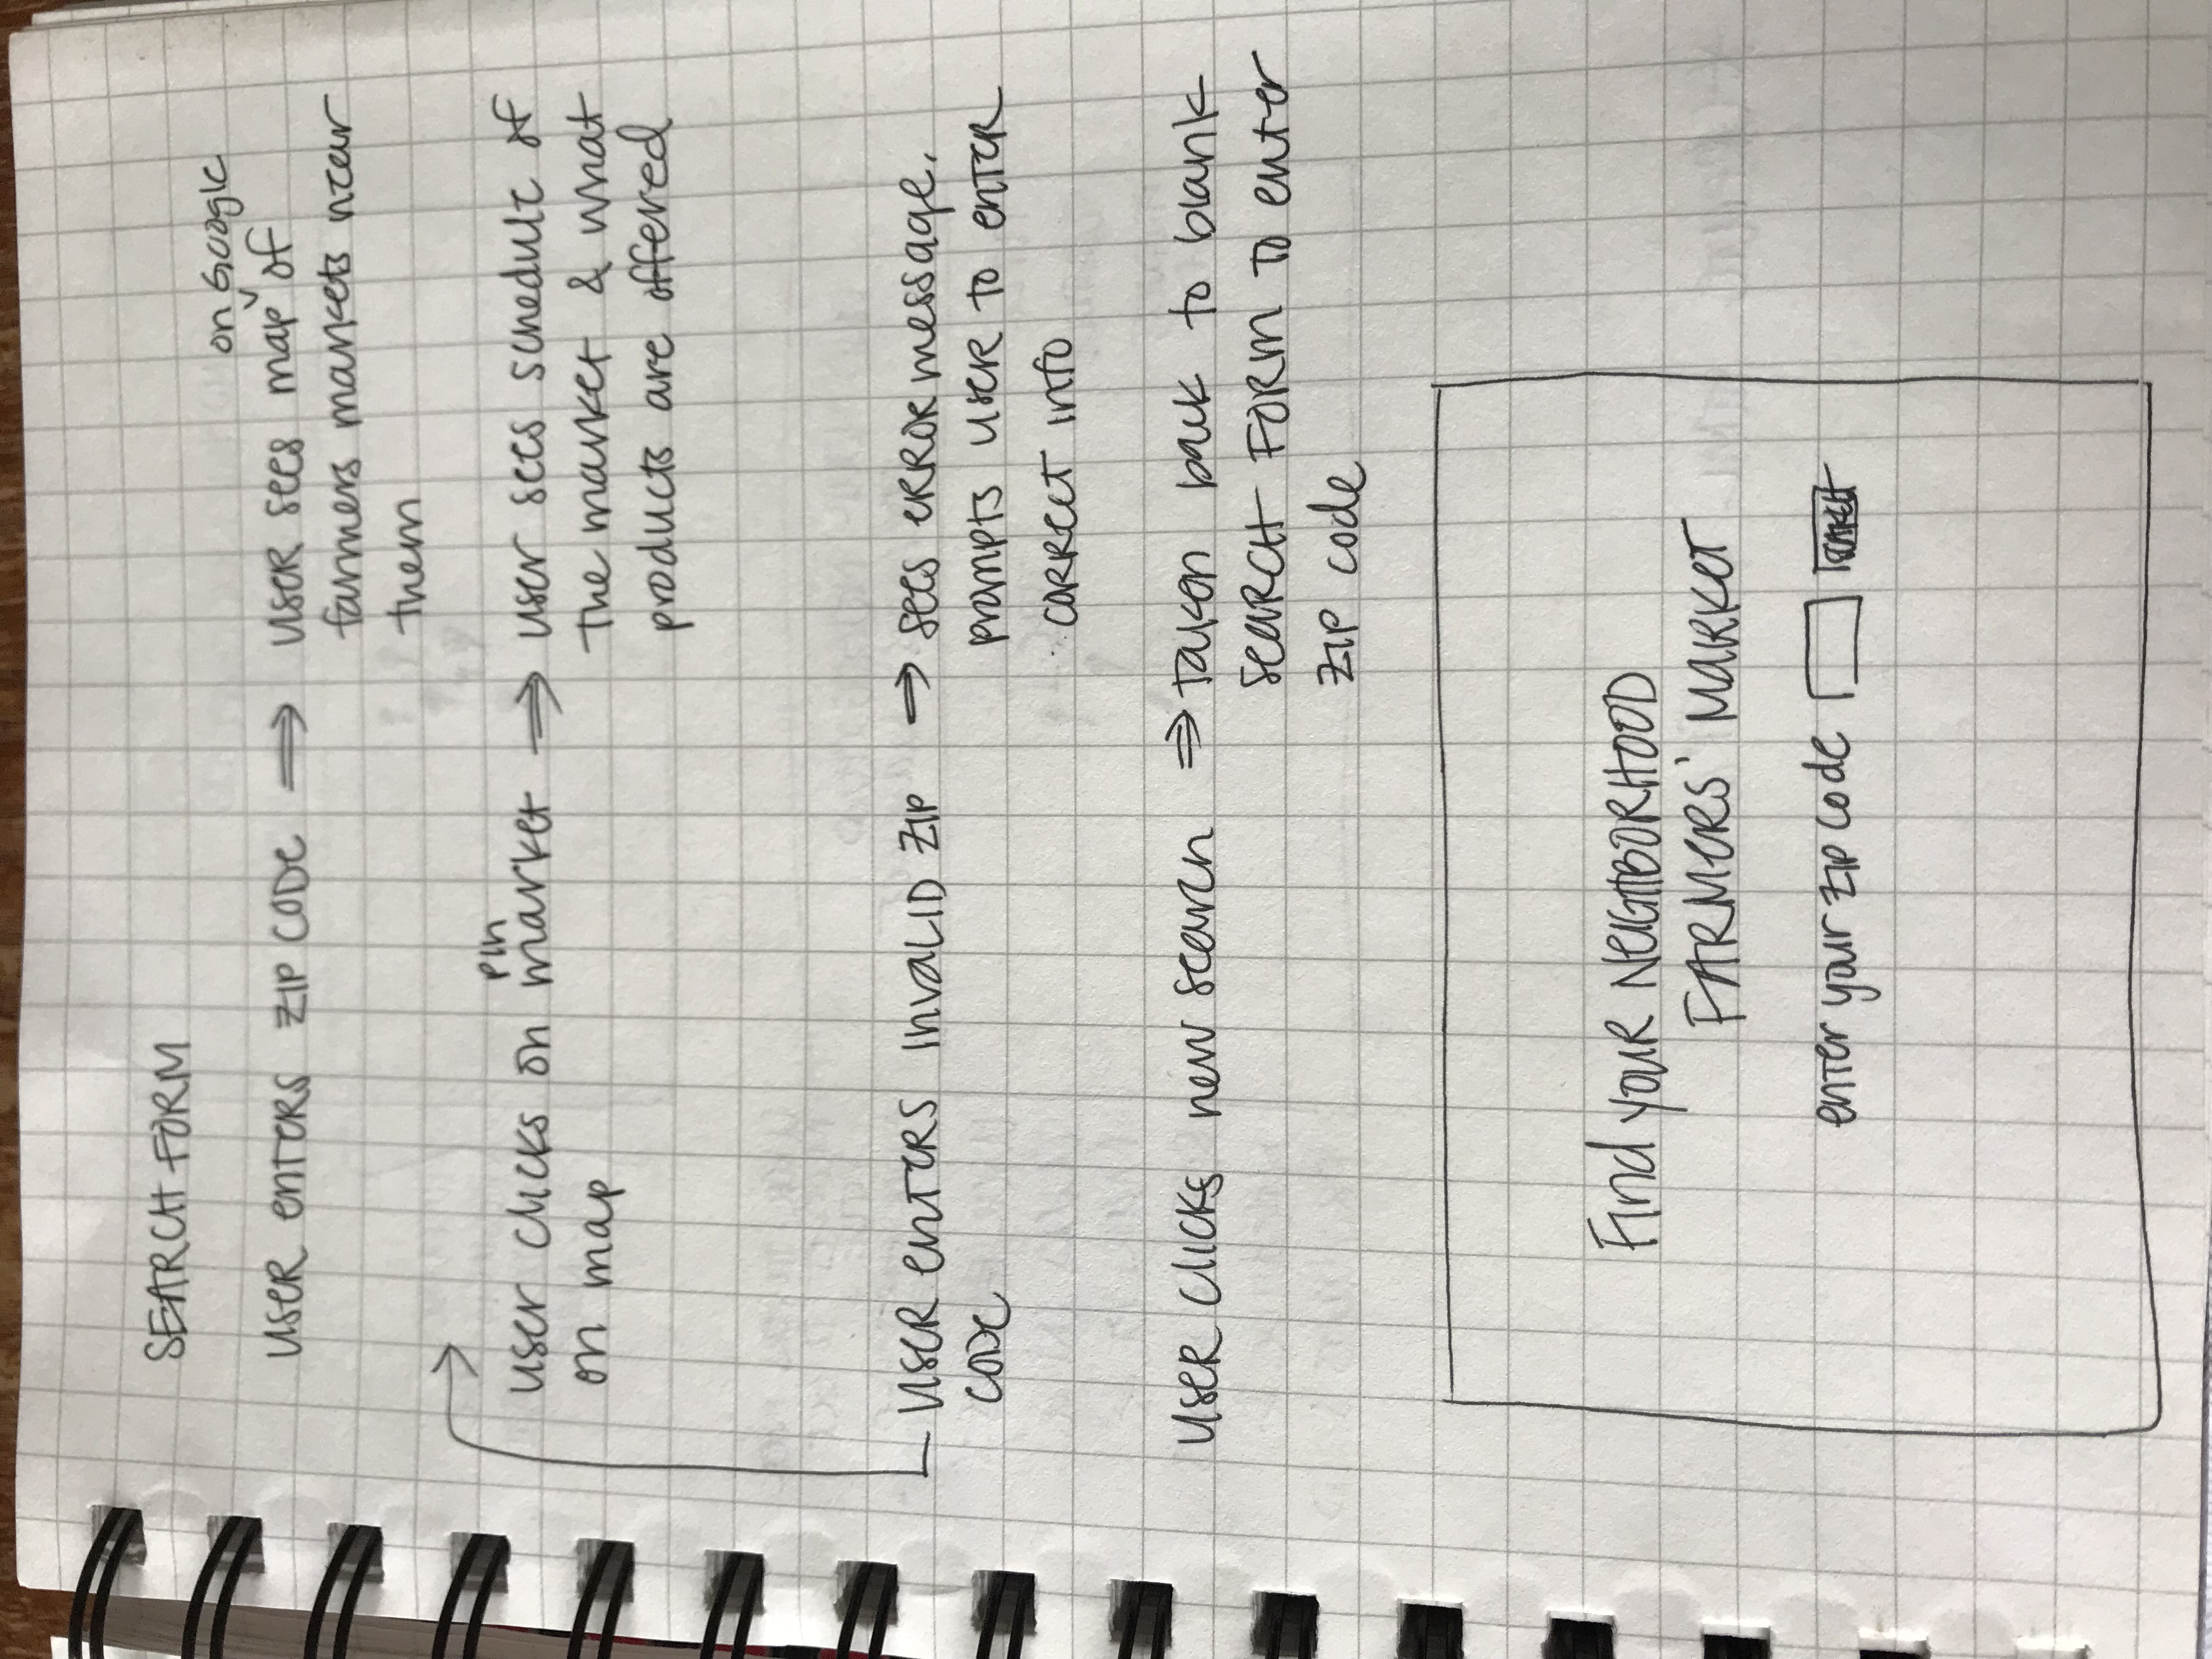 SEARCH FORM
on Google
USER ENTERS ZIP CODE ⇒ USER sees map of
farmers markets near
them
pin
user clicks on market ⇒ user sees schedule of
on map the market & what
products are offered
USER ENTERS INVALID ZIP ⇒ sees ERROR message.
CODE prompts USER TO ENTER
CORRECT INFO
USER clicks new search ⇒ taken back to blank
SEARCH FORM TO enter
ZIP code
Find YOUR NEIGHBORHOOD
FARMERS' MARKET
enter your zip code SEARCH